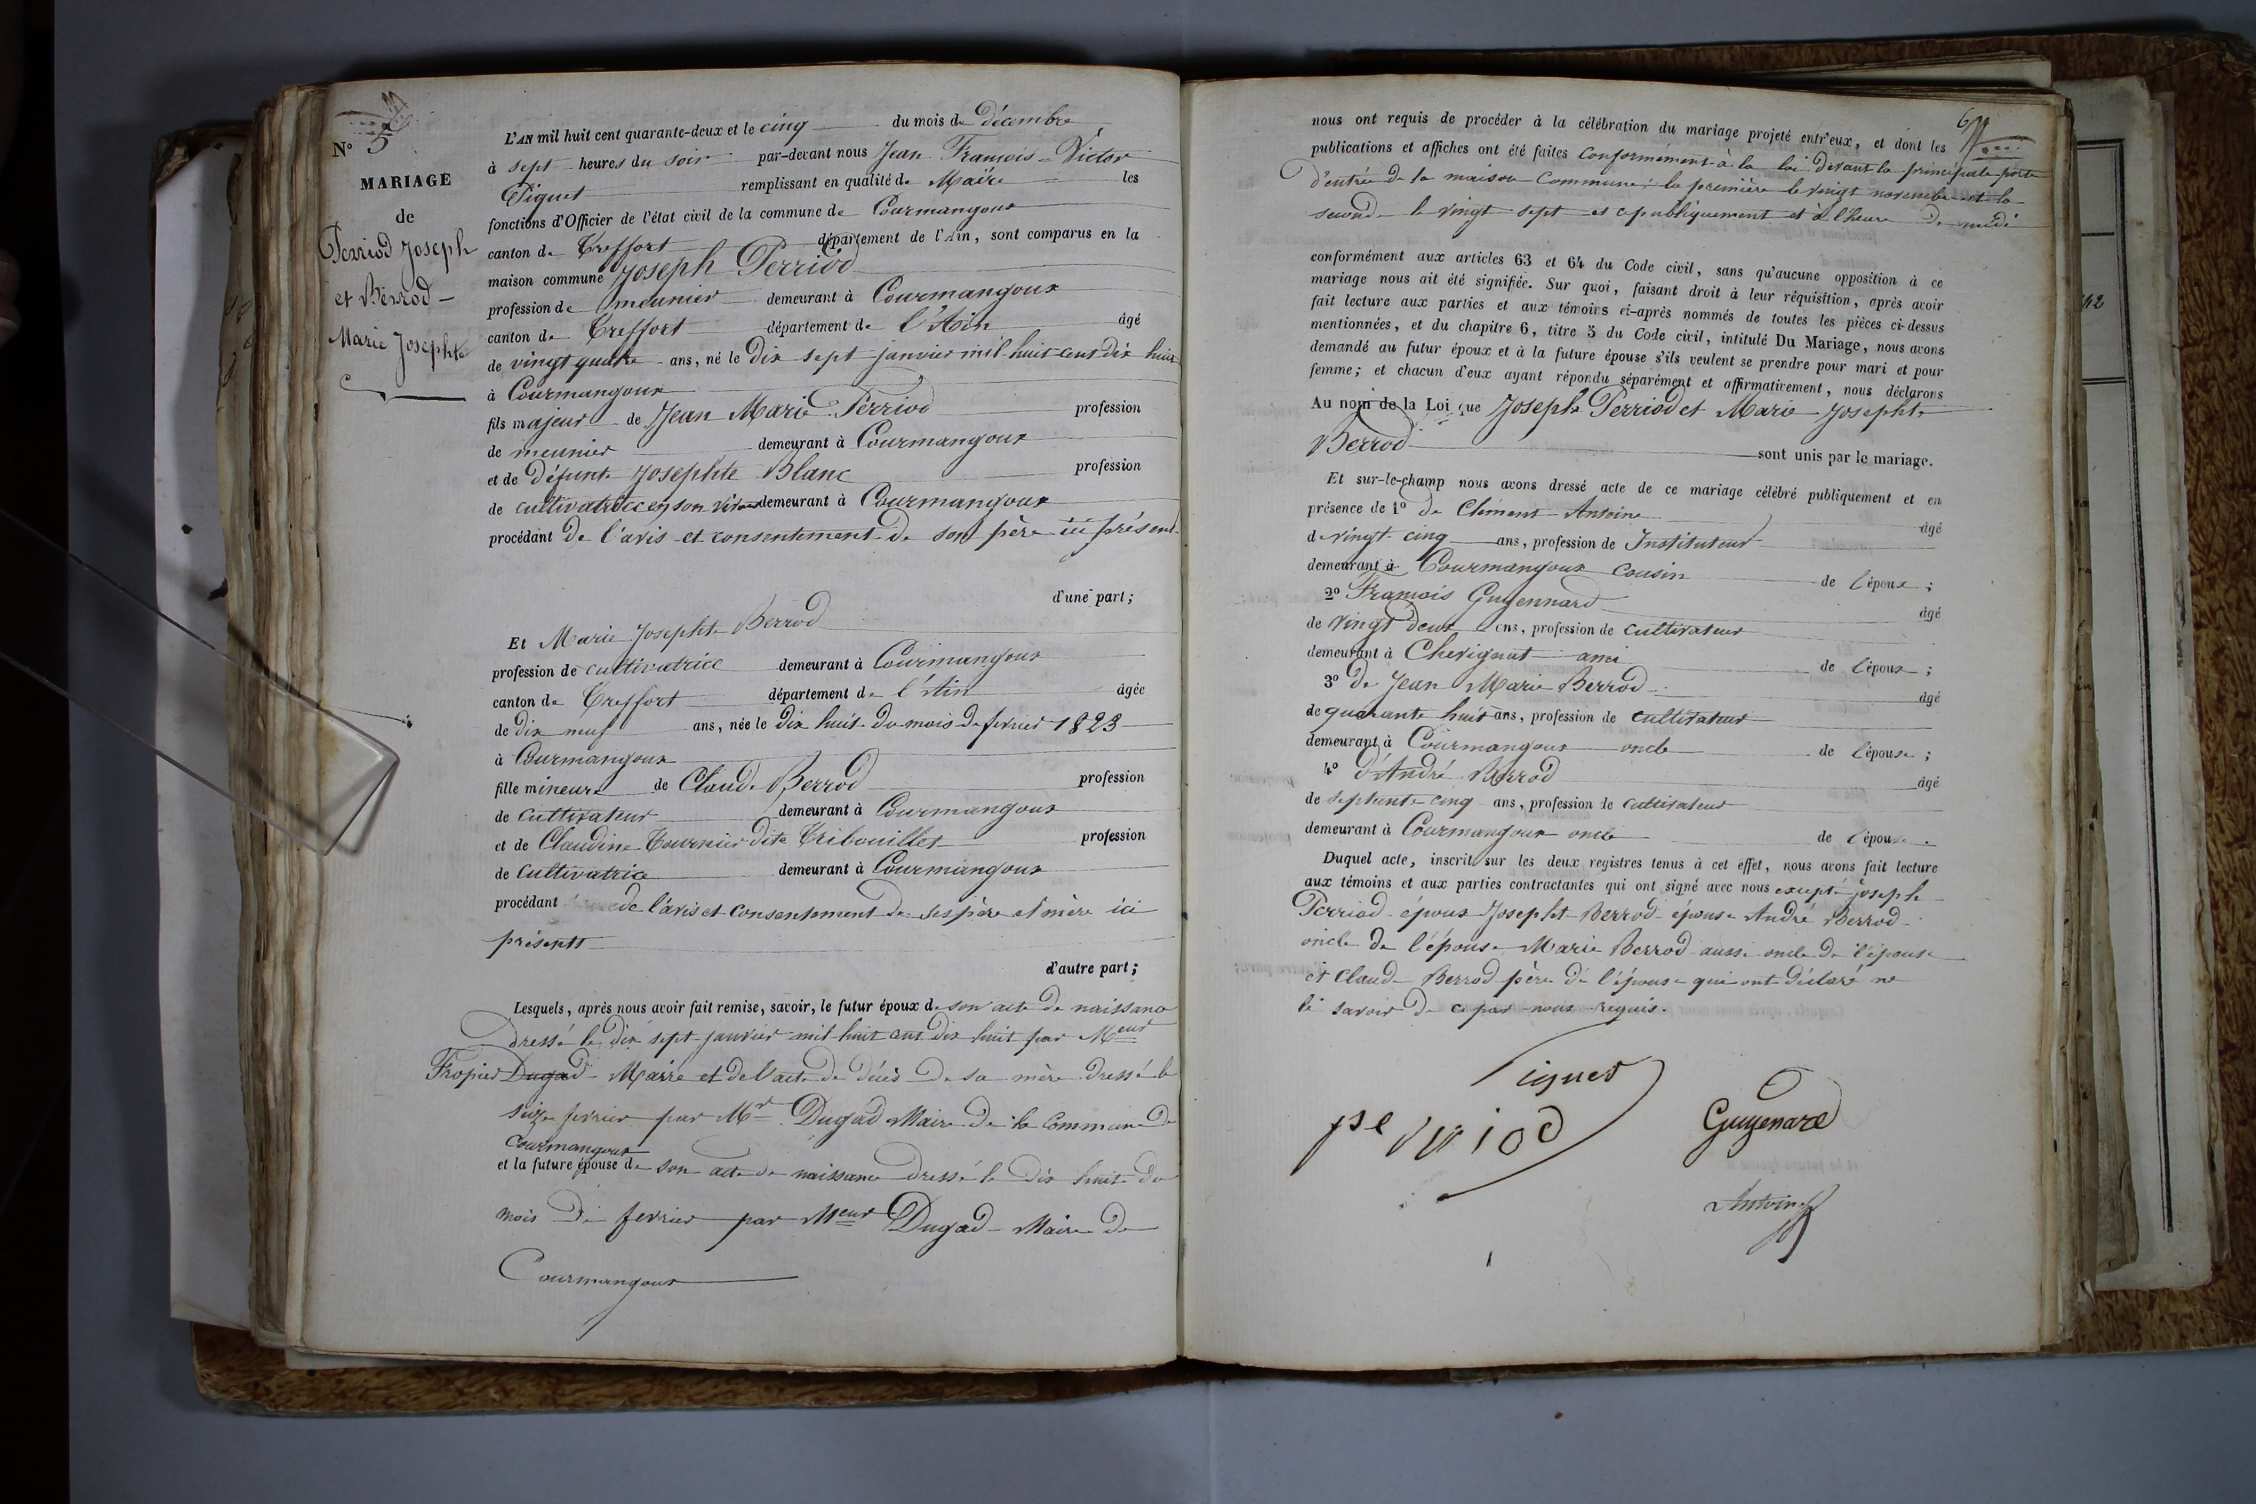 N° 5
MARIAGE
de
Perriod Joseph
et Berrod
Marie Josephte
L'AN mil huit cent quarante-deux et le cinq du mois de décembre
à sept heures du soir par-devant nous Jean François Victor
Piquet remplissant en qualité de Maire les
fonctions d'Officier de l'état civil de la commune de Courmangoux
canton de Treffort département de l'Ain, sont comparus en la
maison commune Joseph Perriod
profession de meunier demeurant à Courmangoux
canton de Treffort département de l'Ain âgé
de vingt quatre ans, né le dix sept janvier mil huit cent dix huit
à Courmangoux
fils majeur de Jean Marie Perriod profession
de meunier demeurant à Courmangoux
et de défunte Josephte Blanc profession
de cultivatrice en son vivant demeurant à Courmangoux
procédant de l'avis et consentement de son père ici présent
d'une part;
Et Marie Josephte Berrod
profession de cultivatrice demeurant à Courmangoux
canton de Treffort département de l'Ain âgée
de dix neuf ans, née le dix huit du mois de fevrier 1823
à Courmangoux
fille mineure de Claude Berrod profession
de cultivateur demeurant à Courmangoux
et de Claudine Tournier dite Tribouillet profession
de cultivatrice demeurant à Courmangoux
procédant de l'avis et consentement de ses père et mère ici
présents
d'autre part;
Lesquels, après nous avoir fait remise, savoir, le futur époux de son acte de naissance
dressé le dix sept janvier mil huit cent dix huit par Meur
Fropier Dugad Maire et de l'acte de décès de sa mère dressé le
seize fevrier par Mr Dugad Maire de la Commune de
Courmangoux
et la future épouse de son acte de naissance dressé le dix huit du
mois de fevrier par Meur Dugad Maire de
Courmangoux
6
nous ont requis de procéder à la célébration du mariage projeté entr'eux, et dont les
publications et affiches ont été faites Conformément à la loi devant la principale porte
d'entrée de la maison Commune: la première le vingt novembre et la
seconde le vingt sept et ce publiquement et à l'heure de midi
conformément aux articles 63 et 64 du Code civil, sans qu'aucune opposition à ce
mariage nous ait été signifiée. Sur quoi, faisant droit à leur réquisition, après avoir
fait lecture aux parties et aux témoins ci-après nommés de toutes les pièces ci-dessus
mentionnées, et du chapitre 6, titre 5 du Code civil, intitulé Du Mariage, nous avons
demandé au futur époux et à la future épouse s'ils veulent se prendre pour mari et pour
femme; et chacun d'eux ayant répondu séparément et affirmativement, nous déclarons
Au nom de la Loi que Joseph Perriod et Marie Josephte
Berrod sont unis par le mariage.
Et sur-le-champ nous avons dressé acte de ce mariage célébré publiquement et en
présence de 1° de Clément Antoine âgé
de vingt cinq ans, profession de Instituteur
demeurant à Courmangoux cousin de l'époux;
2° François Guyennard âgé
de vingt deux ans, profession de cultivateur
demeurant à Chevignat ami de l'époux;
3° de Jean Marie Berrod âgé
de quarante huit ans, profession de cultivateur
demeurant à Courmangoux oncle de l'épouse;
4° d'André Berrod âgé
de septante cinq ans, profession de cultivateur
demeurant à Courmangoux oncle de l'épouse.
Duquel acte, inscrit sur les deux registres tenus à cet effet, nous avons fait lecture
aux témoins et aux parties contractantes qui ont signé avec nous excepté Joseph
Perriod époux Josephte Berrod épouse André Berrod
oncle de l'épouse Marie Berrod aussi oncle de l'épouse
et Claude Berrod père de l'épouse qui ont déclaré ne
le savoir de ce par nous requis.
Piquet
Guyenard
Antoine